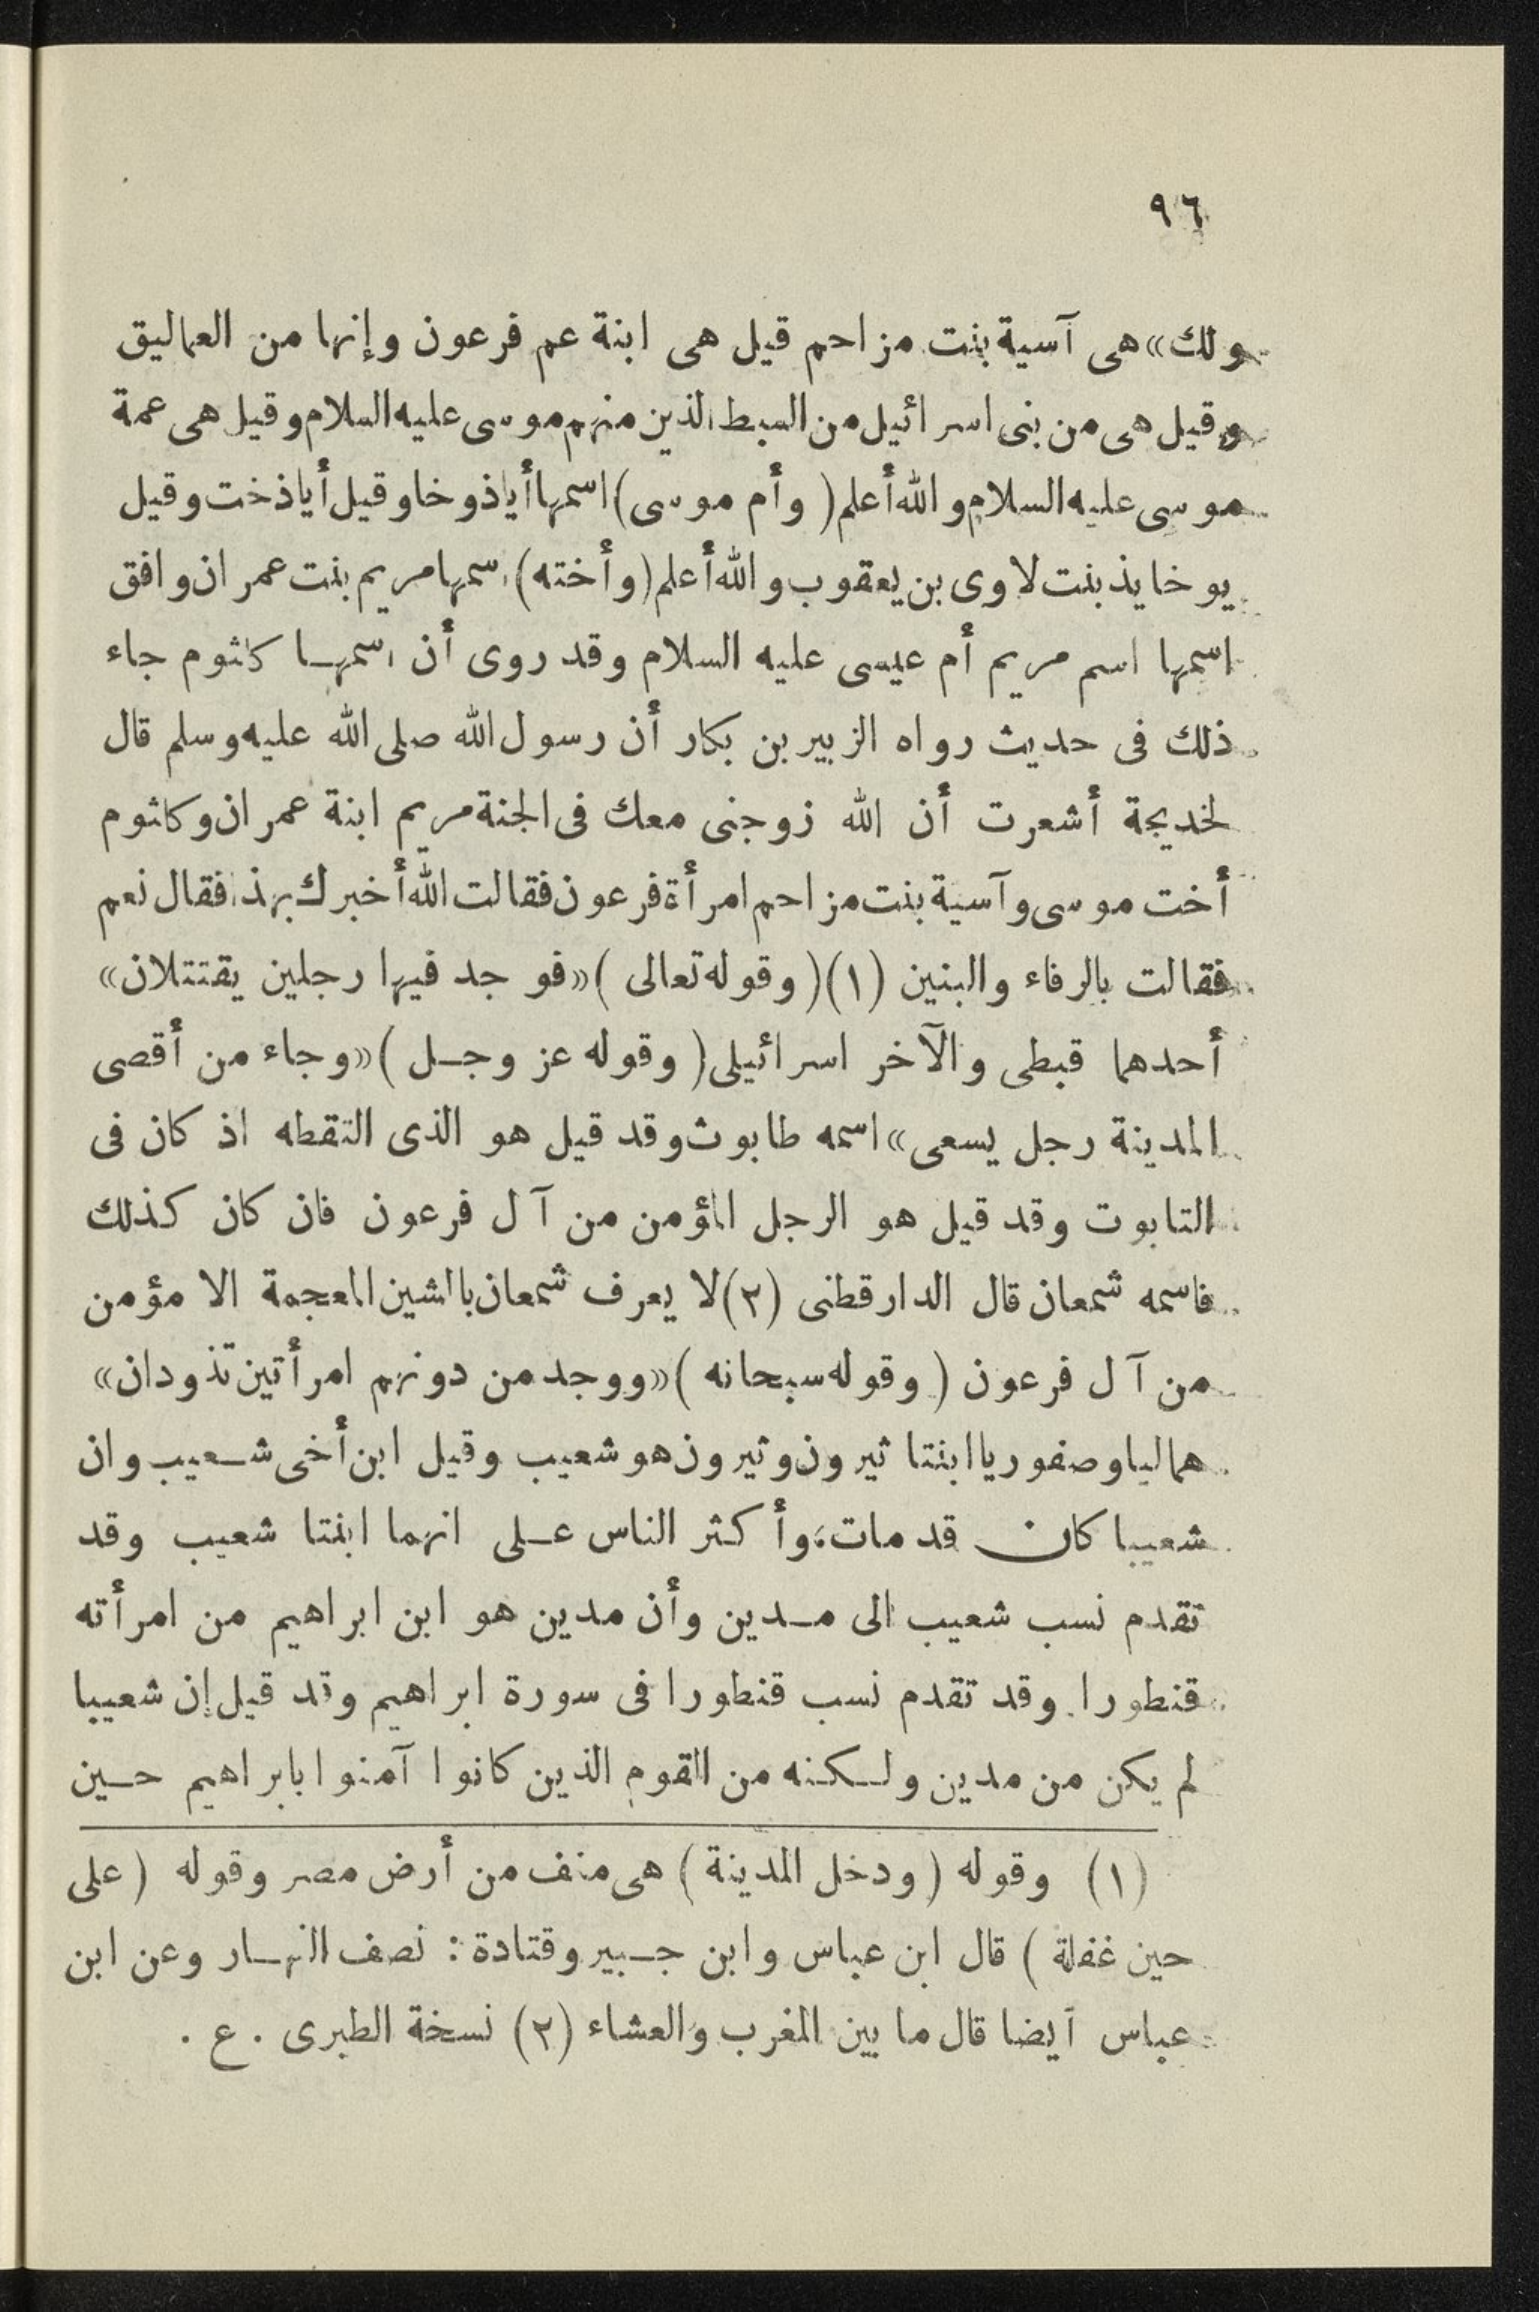 ٩٦
ولك» هى آسية بنت مزاحم قيل هى ابنة عم فرعون وإنها من العماليق
وقيل هى من بنى اسرائيل من السبط الذين منهم موسى عليه السلام وقيل هى عمة
موسى عليه السلام والله أعلم ( وأم موسى ) اسمها أياذوخا وقيل أياذخت وقيل
يوخايذ بنت لاوى بن يعقوب والله أعلم (وأخته) اسمها مريم بنت عمران وافق
اسمها اسم مريم أم عيسى عليه السلام وقد روى أن اسمها كلثوم جاء
ذلك فى حديث رواه الزبير بن بكار أن رسول الله صلى الله عليه وسلم قال
لخديجة أشعرت أن الله زوجنى معك فى الجنة مريم ابنة عمران وكلثوم
أخت موسى وآسية بنت مزاحم امرأة فرعون فقالت الله أخبرك بهذا فقال نعم
فقالت بالرفاء والبنين (١) ( وقوله تعالى ) «فوجد فيها رجلين يقتتلان»
أحدهما قبطى والآخر اسرائيلى ( وقوله عز وجل ) «وجاء من أقصى
المدينة رجل يسعى» اسمه طابوث وقد قيل هو الذى التقطه اذ كان فى
التابوت وقد قيل هو الرجل المؤمن من آل فرعون فان كان كذلك
فاسمه شمعان قال الدارقطنى (٢) لا يعرف شمعان بالشين المعجمة الا مؤمن
من آل فرعون ( وقوله سبحانه ) «ووجد من دونهم امرأتين تذودان»
هما ليا وصفوريا ابنتا ثيرون وثيرون هو شعيب وقيل ابن أخى شعيب وان
شعيبا كان قد مات، وأكثر الناس على انهما ابنتا شعيب وقد
تقدم نسب شعيب الى مدين وأن مدين هو ابن ابراهيم من امرأته
قنطورا وقد تقدم نسب قنطورا فى سورة ابراهيم وقد قيل إن شعيبا
لم يكن من مدين ولكنه من القوم الذين كانوا آمنوا بابراهيم حين
(١) وقوله ( ودخل المدينة ) هى منف من أرض مصر وقوله ( على
حين غفلة ) قال ابن عباس وابن جبير وقتادة : نصف النهار وعن ابن
عباس أيضا قال ما بين المغرب والعشاء (٢) نسخة الطبرى . ع .